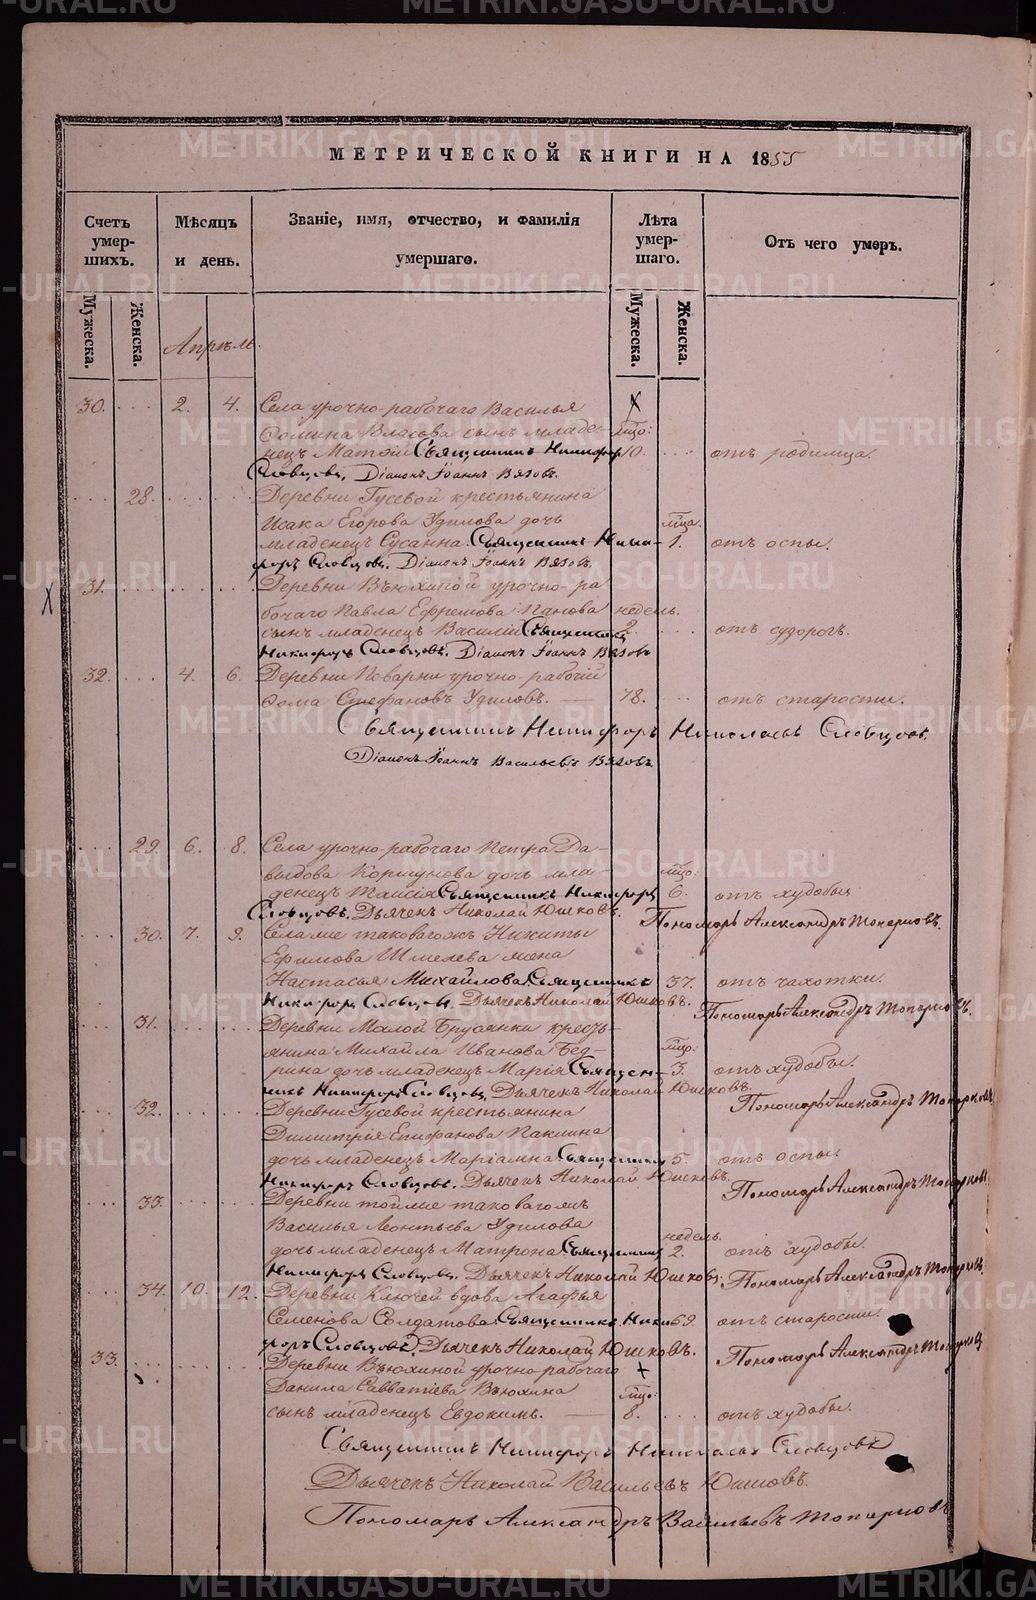 МЕТРИЧЕСКОЙ КНИГИ НА 1855
Счетъ умер-шихъ. Мѣсяцъ и день. Званіе, имя, отчество, и фамилія умершаго. Лѣта умер-шаго. Отъ чего умеръ.
Мужеска. Женска. Мужеска. Женска.
Апрѣль.
30. 2. 4. Села урочно-рабочаго Василья
Ѳомина Власова сынъ младе- мцо:
нецъ Матѳій Священникъ Никифоръ 10. отъ родимца.
Словцовъ, Діаконъ Іоаннъ Вязовъ.
28. Деревни Гусевой крестьянина
Исака Егорова Удилова дочь мца.
младенецъ Сусанна. Священникъ Ники- 1. отъ оспы.
форъ Словцовъ, Діаконъ Іоаннъ Вязовъ.
31. Деревни Вьюхиной урочно-ра
бочаго Павла Ефремова Панова недель.
сынъ младенецъ Василій Священникъ 2. отъ судорогъ.
Никифоръ Словцовъ. Діаконъ Іоаннъ Вязовъ
32. 4. 6. Деревни Поварни урочно-рабочій
Ѳома Стефановъ Удиловъ. 78. отъ старости.
Священникъ Никифоръ Николаевъ Словцовъ.
Діаконъ Іоаннъ Васильевъ Вязовъ.
29. 6. 8. Села урочно-рабочаго Петра Да-
выдова Коршунова дочь мла- мцо:
денецъ Таисія Священникъ Никифоръ 6. отъ худобы
Словцовъ. Дьячекъ Николай Юшковъ. Пономарь Александръ Топорковъ.
30. 7. 9. Села тае таковагожъ Никиты
Ефимова Шмелева жена
Настасья Михайлова Священникъ 37. отъ чахотки.
Никифоръ Словцовъ. Дьячекъ Николай Юшковъ. Пономарь Александръ Топорковъ.
31. Деревни Малой Брусянки кресть-
янина Михайла Иванова Бед- мцо:
рина дочь младенецъ Марія Священ- 3. отъ худобы.
никъ Никифоръ Словцовъ, Дьячекъ Николай Юшковъ. Пономарь Александръ Топорковъ
32. Деревни Гусевой крестьянина
Димитрія Епифанова Паклина
дочь младенецъ Маріамна Священникъ 5. отъ оспы.
Никифоръ Словцовъ. Дьячекъ Николай Юшковъ. Пономарь Александръ Топорковъ
33. Деревни тойже таковагожъ
Василья Леонтьева Удилова недель.
дочь младенецъ Матрона. Священникъ 2. отъ худобы.
Никифоръ Словцовъ. Дьячекъ Николай Юшковъ. Пономарь Александръ Топорковъ.
34. 10. 12. Деревни Ключей вдова Агафья
Семенова Солдатова Священникъ Ники 69. отъ старости.
форъ Словцовъ. Дьячекъ Николай Юшковъ. Пономарь Александръ Топорковъ
33. Деревни Вьюхиной урочно-рабочаго
Данила Савватіева Вьюхина мцо:
сынъ младенецъ Евдокимъ. 8. отъ худобы.
Священникъ Никифоръ Николаевъ Словцовъ
Дьячекъ Николай Васильевъ Юшковъ.
Пономарь Александръ Васильевъ Топорковъ
METRIKI.GASO-URAL.RU